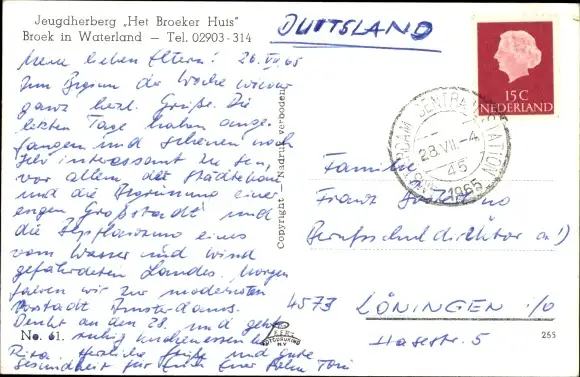 Jeugdherberg „Het Broeker Huis"
Broek in Waterland — Tel. 02903-314
DUITSLAND
15 C
NEDERLAND
AMSTERDAM CENTRAALSTATION
28.VII.-4
45
1965
Meine lieben Eltern! 26.VII.65
Zum Beginn der Woche wieder
ganz herzl. Grüße. Die
letzten Tage haben ange-
fangen und scheinen noch
sehr interessant zu sein,
vor allem der Städtebau
und die einer
engen Großstadt und
die eines
vom Wasser und Wind
gefährdeten Landes. Morgen
fahren wir zur modernsten
Vorstadt Amsterdams.
Denkt an den 28. und geht
ruhig Kuchenessen
Rita. Herzliche Grüße und gute
Gesundheit für Euch Euer Toni
Copyright — Nadruk verboden
Familie
Franz
Berufsschuldirektor a.D.
4573 LÖNINGEN i/O
Hasestr. 5
No. 61.
265